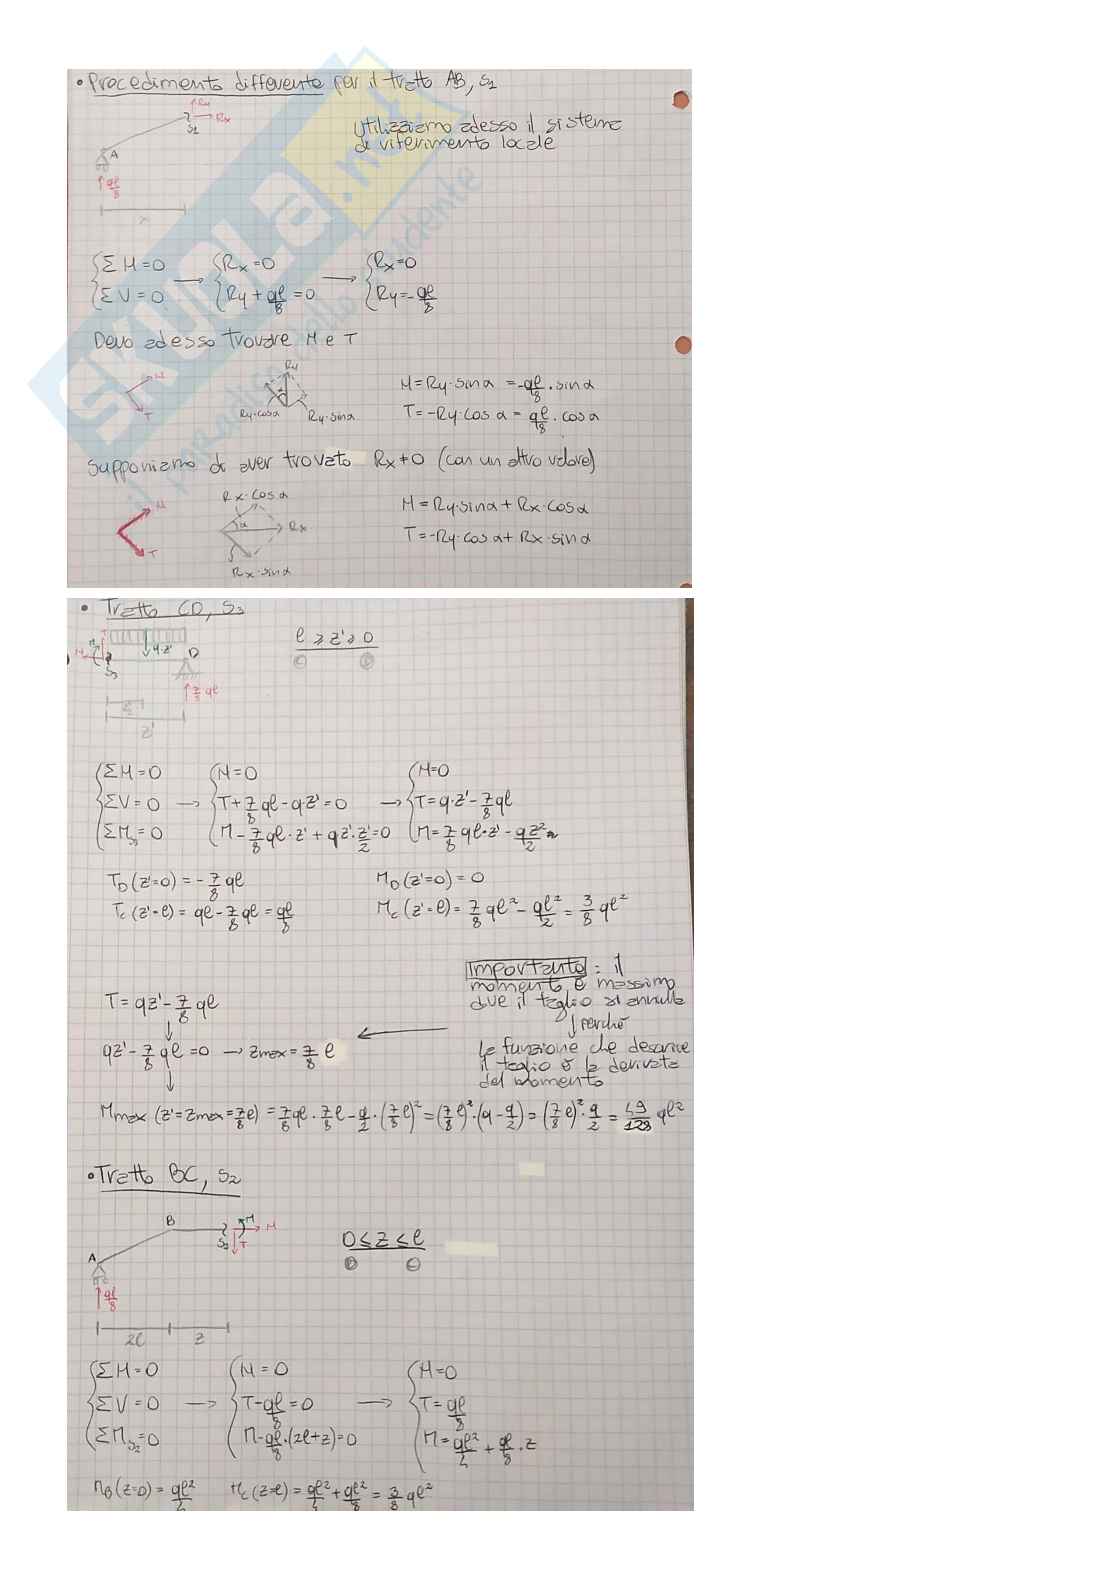 • Procedimento differente per il tratto AB, S1
Ry
Rx
S1
A
qℓ/8
z
Utilizziamo adesso il sistema
di riferimento locale
ΣH=0 → Rx=0 → Rx=0
ΣV=0 Ry + qℓ/8 = 0 Ry=-qℓ/8
Devo adesso trovare N e T
N
T
Ry
Ry·cosα
Ry·sinα
N=Ry·sinα = -qℓ/8·sinα
T=-Ry·cosα = qℓ/8·cosα
Supponiamo di aver trovato Rx≠0 (con un altro valore)
N
T
Rx·cosα
α
Rx
Rx·sinα
N=Ry·sinα + Rx·cosα
T=-Ry·cosα + Rx·sinα
SKUOLA.net
il paradiso dello studente
• Tratto CD, S3
ℓ ≥ z' ≥ 0
C D
T
M
N
q·z'
D
S3
7/8 qℓ
z'/2
z'
ΣH=0 N=0 N=0
ΣV=0 → T+7/8 qℓ-q·z'=0 → T=q·z'-7/8 qℓ
ΣM_S3=0 M-7/8 qℓ·z'+qz'·z'/2=0 M=7/8 qℓ·z'-qz'²/2
T_D(z'=0)=-7/8 qℓ M_D(z'=0)=0
T_C(z'=ℓ)=qℓ-7/8 qℓ=qℓ/8 M_C(z'=ℓ)=7/8 qℓ²-qℓ²/2=3/8 qℓ²
Importante: il
momento è massimo
dove il taglio si annulla
↓ perché
la funzione che descrive
il taglio è la derivata
del momento
T=qz'-7/8 qℓ
↓
qz'-7/8 qℓ=0 → zmax=7/8 ℓ
↓
Mmax(z'=zmax=7/8ℓ)=7/8qℓ·7/8ℓ-q/2·(7/8ℓ)²=(7/8ℓ)²·(q-q/2)=(7/8ℓ)²·q/2=49/128 qℓ²
• Tratto BC, S2
B
M
N
T
S2
A
qℓ/8
2ℓ
z
0≤z≤ℓ
B C
ΣH=0 N=0 N=0
ΣV=0 → T-qℓ/8=0 → T=qℓ/8
ΣM_S2=0 M-qℓ/8·(2ℓ+z)=0 M=qℓ²/4+qℓ/8·z
M_B(z=0)=qℓ²/4 M_C(z=ℓ)=qℓ²/4+qℓ²/8=3/8 qℓ²